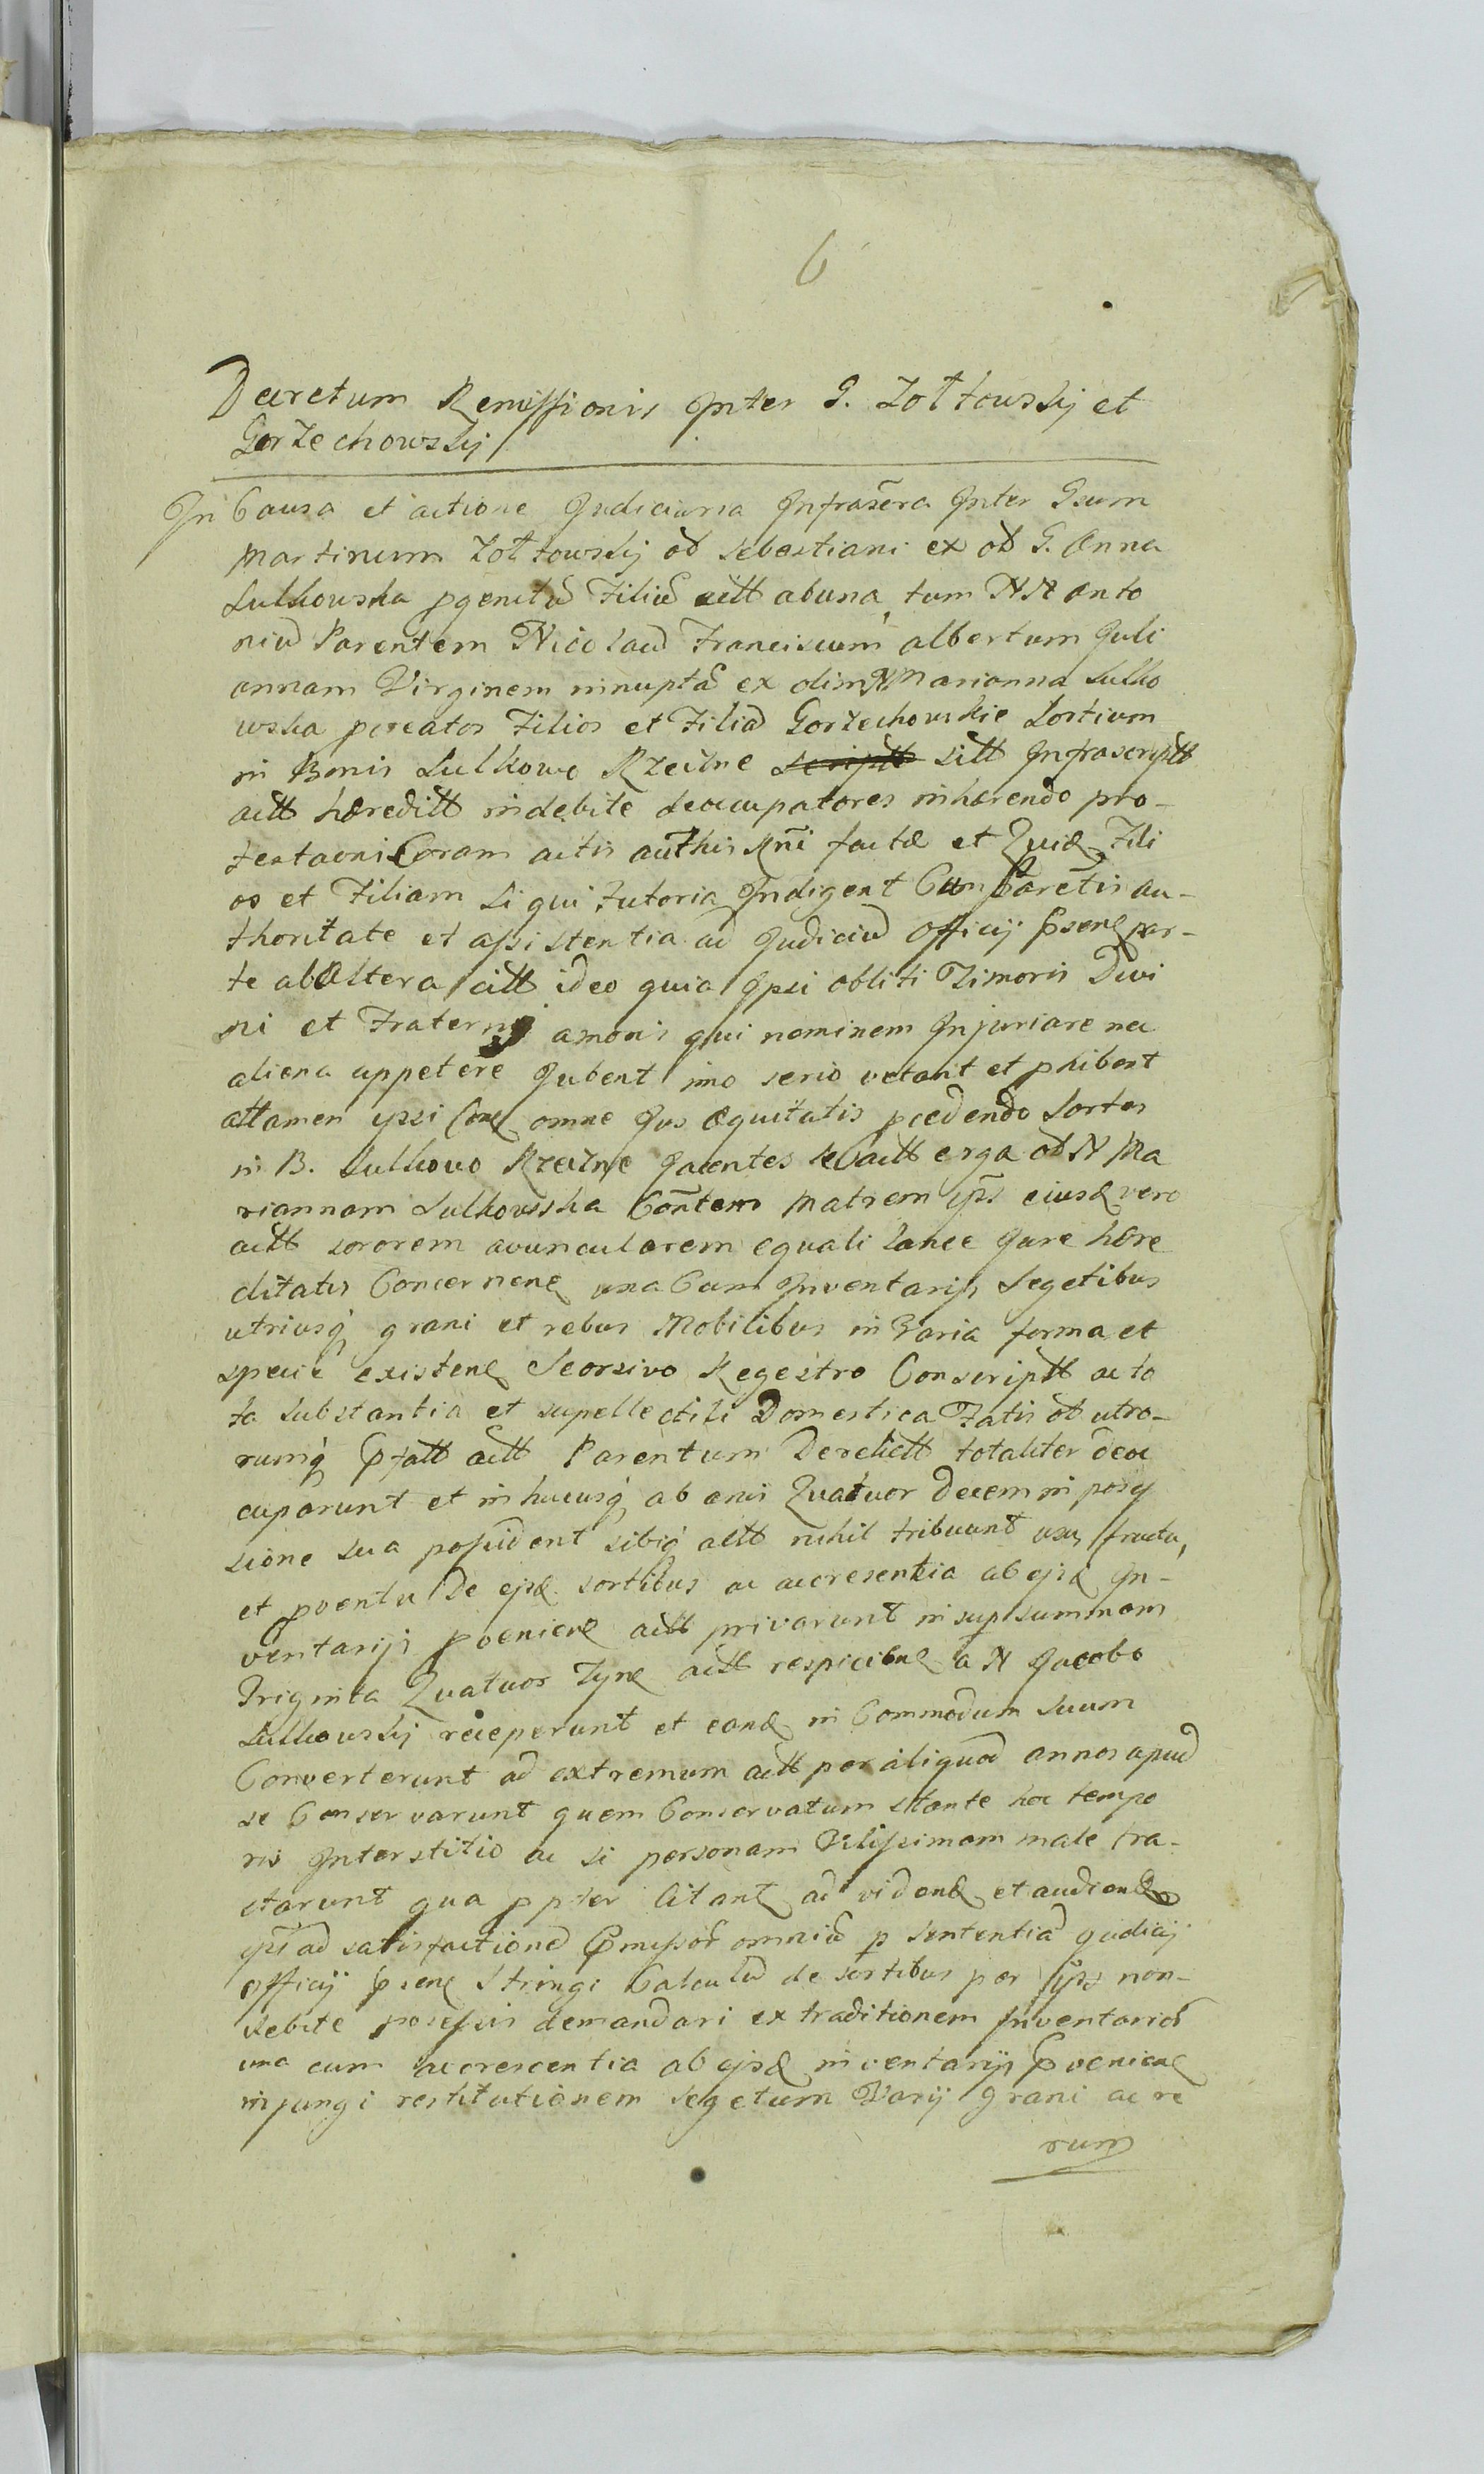 6
Decretum Remissionis Inter G. Zołtowskij et
Gorzechowskij
In Causa et actione Judiciaria Infrascra Inter Gsum
Martinum Zołtowskij od Sebestiani ex od G. Anna
Lulkowska pgenitu Filiu actt abuna, tum NN Anto
niu Parentem Nicolau Franciscum albertum Juli
annam Virginem innupta ex olim N Marianna Lulko
wska pcreator Filios et Filia Gorzechowskie Sortium
in Bonis Lulkowo Rzeczne sitt Infrascriptt
actt hæreditt indebite deoccupatores inhærendo pro-
testaoni Coram actis authis Rni factæ et Fili
os et Filiam si qui tutoria Indigent Cum Paretis au-
thoritate et assistentia ad Judiciu Officij psene par-
te ab altera citt ideo quia Ipsi obliti Timoris Divi
ni et Fraterni amoris qui neminem Injuriare nec
aliena appetere Jubent imo serio vetant et phibent
attamen ipsi omne Jus æquitatis pcedendo Sortes
in B. Lulkowo Rzeczne Jacentes actt erga od N Ma
riannam Lulkowska Contem Matrem ips eiusd vero
actt sororem avuncularem equali lance Jure hære
ditatis Concernene una Cum Inventarijs Segetibus
utriusq grani et rebus Mobilibus in Varia forma et
specie existene Seorsivo Regestro Conscriptt ac to
ta substantia et supellectili Domestica Fatis od utro-
rumq pfatt actt Parentum Derelictt totaliter deoc
cuparunt et in hucusq ab anis Quatuor Decem in posses
sione sua possident sibiq actt nihil tribuunt usu fructu,
et pventu de ejsd sortibus ac accrescentia ab ejsd In-
ventarijs pveniene actt privarunt insup summam
Triginta Quatuor Tyne actt respiciene a N Jacobo
Lulkowskij receperunt et eand in Commodum suum
Converterunt ad extremum actt per aliquod annos apud
se Conservarunt quem Conservatum stante hoc tempo
ris Interstitio ac si personam Vilissimam male tra-
ctarunt qua ppter Citant ad vidend et audiend
ips ad satisfactione pmissor omniu p Sententia Judicij
officij psene Stringi Calculu de sortibus per ips non-
debite possessis demandari extraditionem Inventarior
una cum accrescentia ab ejsd inventarijs pveniene
injungi restitutionem segetum Varij grani ac re
rum